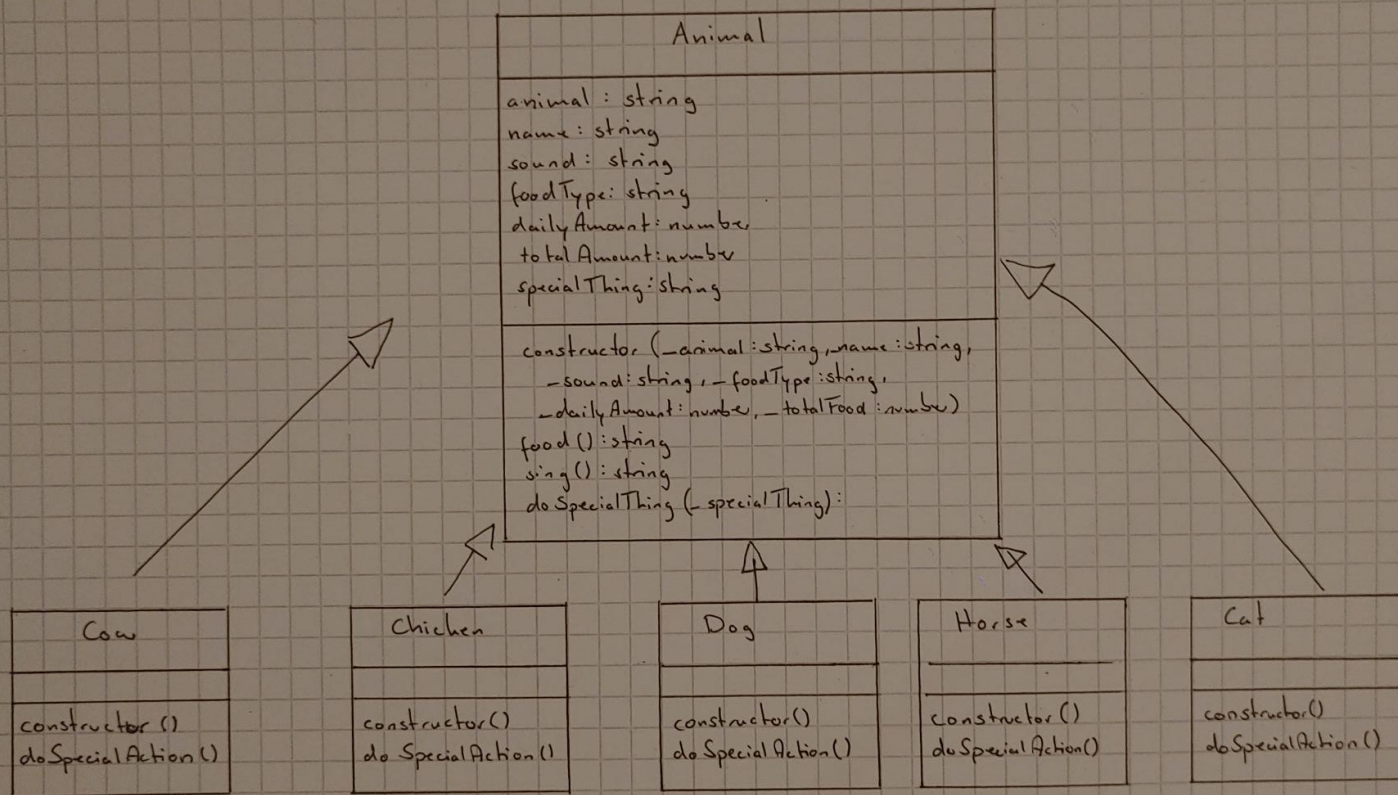 Animal
animal : string
name : string
sound : string
foodType : string
dailyAmount : number
totalAmount : number
specialThing : string
constructor (_animal : string, _name : string,
_sound : string, _foodType : string,
_dailyAmount : number, _totalFood : number)
food () : string
sing () : string
doSpecialThing (_specialThing) :
Cow
constructor ()
doSpecialAction ()
Chicken
constructor ()
doSpecialAction ()
Dog
constructor ()
doSpecialAction ()
Horse
constructor ()
doSpecialAction ()
Cat
constructor ()
doSpecialAction ()